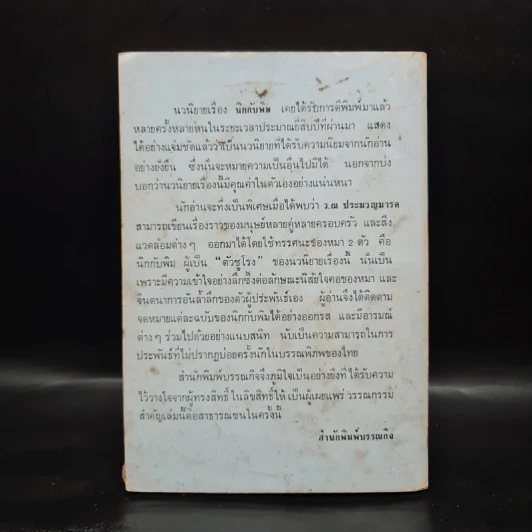 นวนิยายเรื่อง นิกกับพิม เคยได้รับการตีพิมพ์มาแล้ว
หลายครั้งหลายหนในระยะเวลาประมาณยี่สิบปีที่ผ่านมา แสดง
ได้อย่างแจ่มชัดแล้วว่าเป็นนวนิยายที่ได้รับความนิยมจากนักอ่าน
อย่างยั่งยืน ซึ่งนั่นจะหมายความเป็นอื่นไปมิได้ นอกจากบ่ง
บอกว่านวนิยายเรื่องนี้มีคุณค่าในตัวเองอย่างแน่นหนา
นักอ่านจะทึ่งเป็นพิเศษเมื่อได้พบว่า ว.ณ ประมวญมารค
สามารถเขียนเรื่องราวของมนุษย์หลายคู่หลายครอบครัว และสิ่ง
แวดล้อมต่างๆ ออกมาได้โดยใช้ทรรศนะของหมา 2 ตัว คือ
นิกกับพิม ผู้เป็น “ตัวชูโรง” ของนวนิยายเรื่องนี้ นั่นเป็น
เพราะมีความเข้าใจอย่างลึกซึ้งต่อลักษณะนิสัยใจคอของหมา และ
จินตนาการอันล้ำลึกของตัวผู้ประพันธ์เอง ผู้อ่านจึงได้ติดตาม
จดหมายแต่ละฉบับของนิกกับพิมได้อย่างออกรส และมีอารมณ์
ต่างๆ ร่วมไปด้วยอย่างแนบสนิท นับเป็นความสามารถในการ
ประพันธ์ที่ไม่ปรากฏบ่อยครั้งนักในบรรณพิภพของไทย
สำนักพิมพ์บรรณกิจจึงภูมิใจเป็นอย่างยิ่งที่ได้รับความ
ไว้วางใจจากผู้ทรงสิทธิ์ในลิขสิทธิ์ให้เป็นผู้เผยแพร่วรรณกรรม
สำคัญเล่มนี้ต่อสาธารณชนในครั้งนี้
สำนักพิมพ์บรรณกิจ